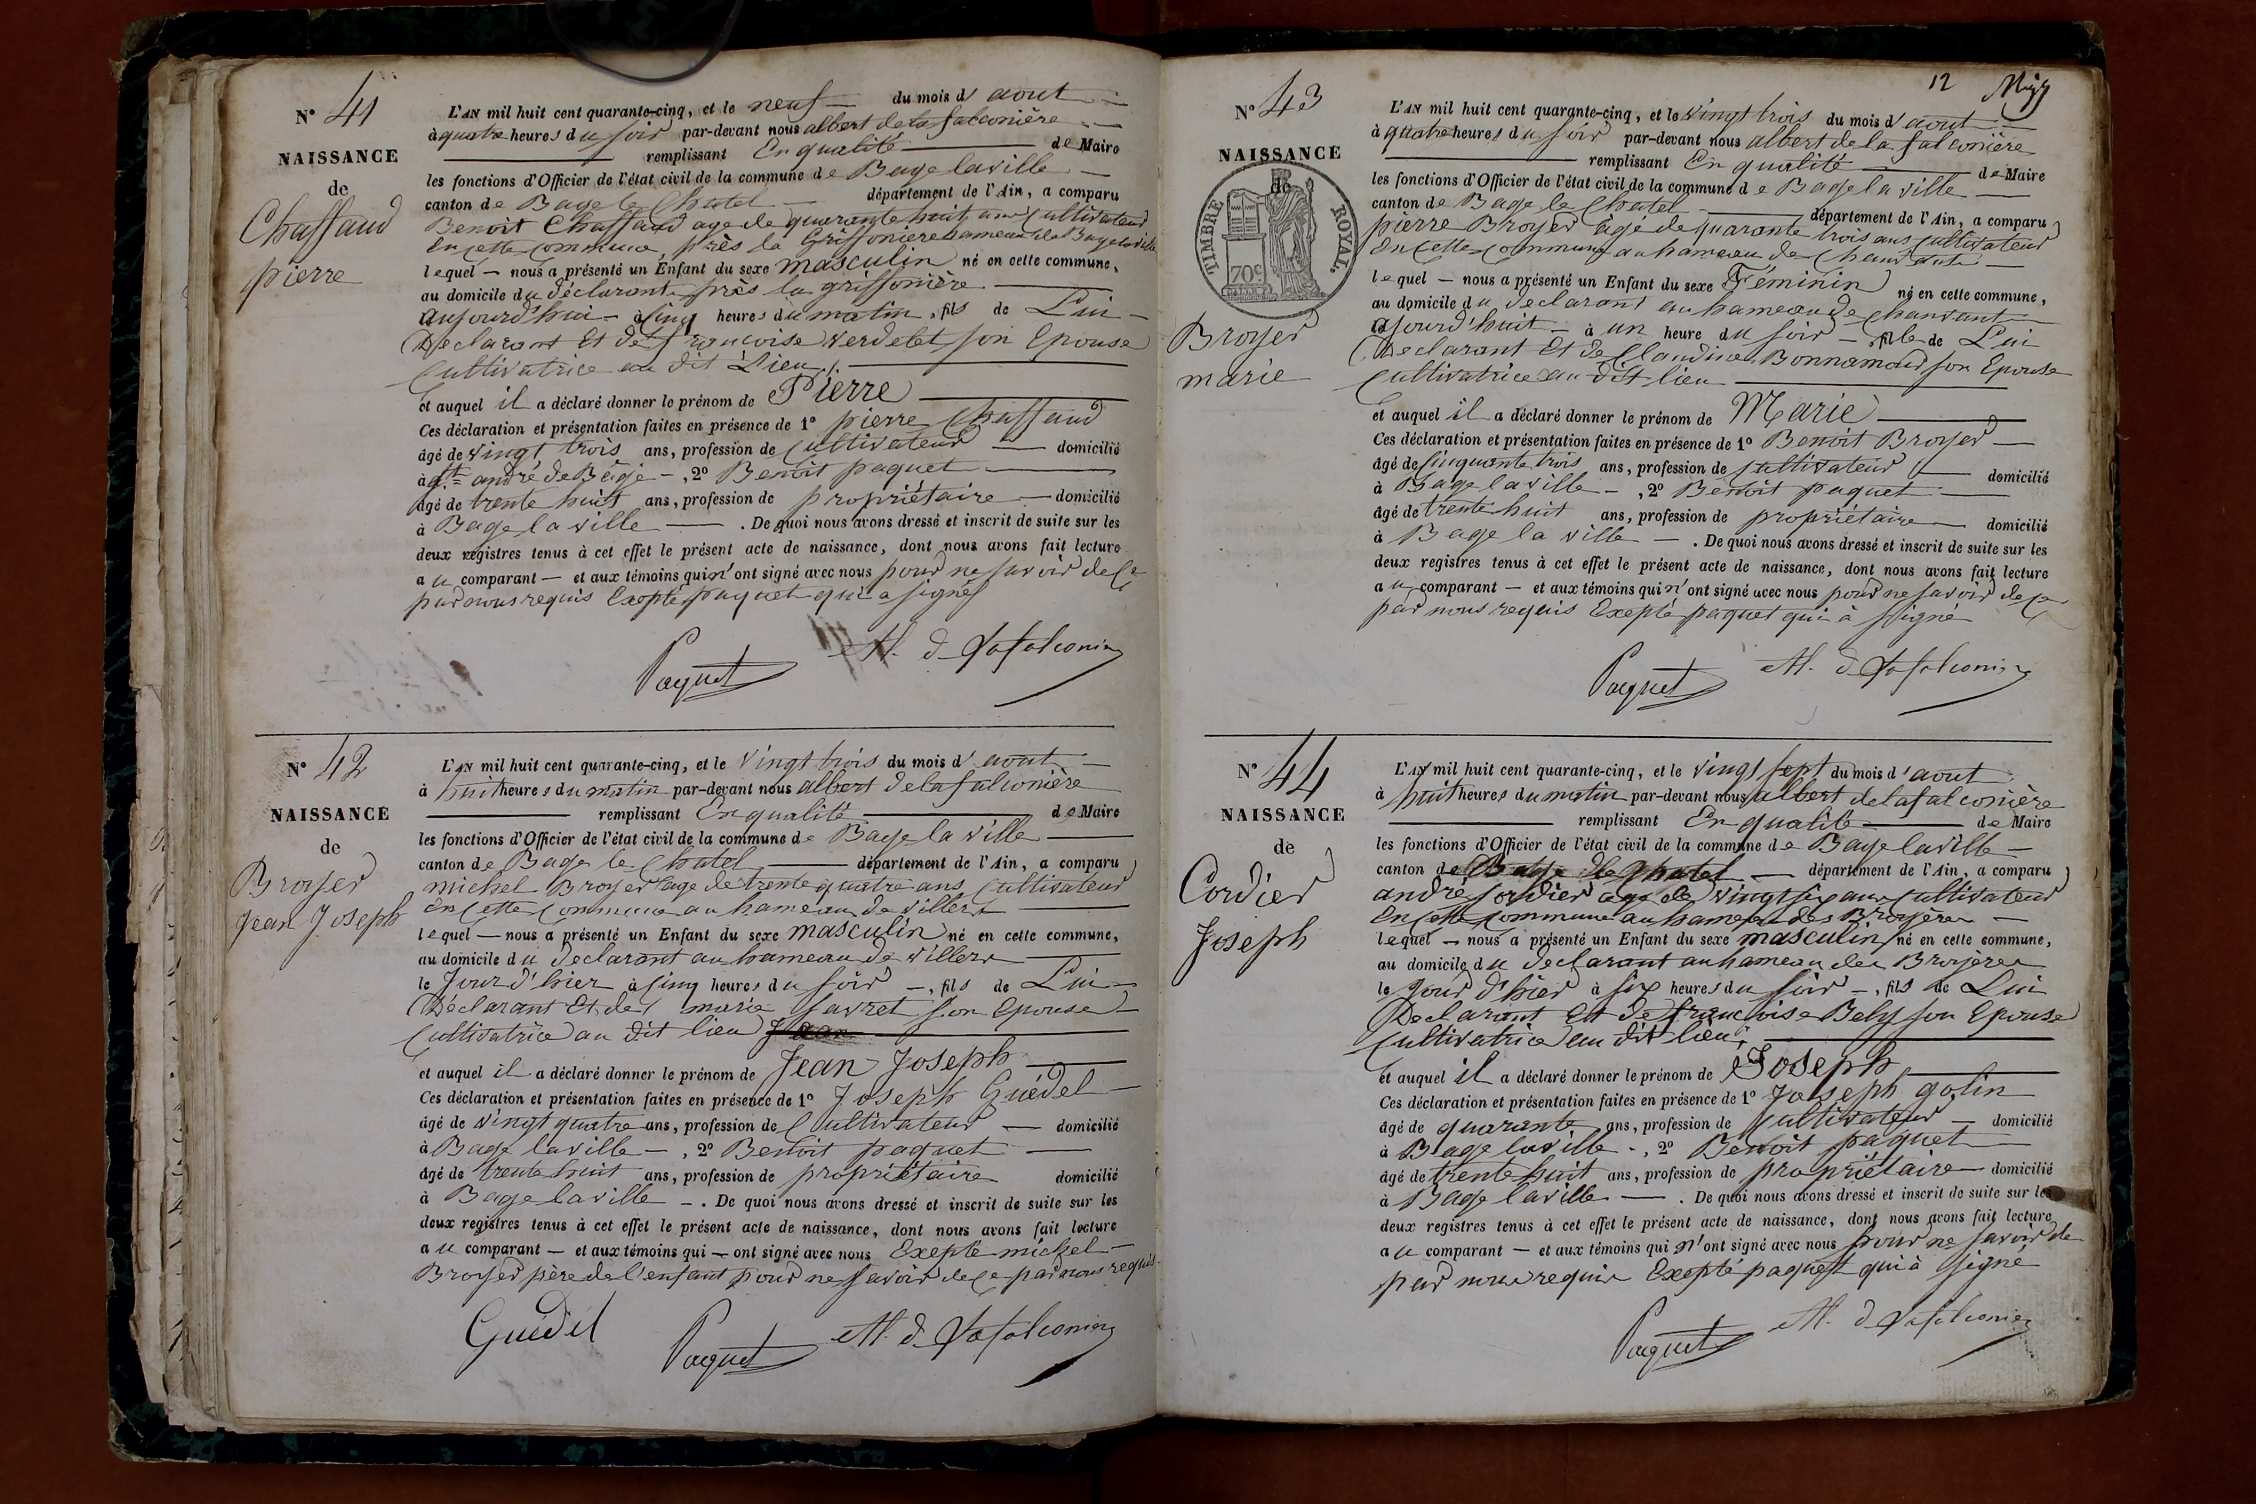 N° 41
NAISSANCE
de
Chaffaud
pierre
L'AN mil huit cent quarante-cinq, et le neuf du mois d'aout
à quatre heures du soir par-devant nous albert de la falconière
remplissant En qualité de Maire
les fonctions d'Officier de l'état civil de la commune de Bage la ville
canton de Bage le Chatel département de l'Ain, a comparu
Benoit Chaffaud age de quarante huit ans Cultivateur
en cette commune, près la Griffonière hameau de Bage la ville
lequel — nous a présenté un Enfant du sexe masculin né en cette commune,
au domicile du déclarant près la griffonière
aujourd'hui à Cinq heures du matin, fils de Lui
Declarant Et de françoise Verdelet son Epouse
Cultivatrice au dit Lieu
et auquel il a déclaré donner le prénom de Pierre
Ces déclaration et présentation faites en présence de 1° pierre Chaffaud
âgé de vingt trois ans, profession de Cultivateur domicilié
à St andré de Bâgé, 2° Benoit paquet
âgé de trente huit ans, profession de propriétaire domicilié
à Bage la ville. De quoi nous avons dressé et inscrit de suite sur les
deux registres tenus à cet effet le présent acte de naissance, dont nous avons fait lecture
au comparant — et aux témoins qui n'ont signé avec nous pour ne savoir de Ce
par nous requis Exepté paquet qui a signé
Paquet Al. d Lafalconière
N° 42
NAISSANCE
de
Broyer
Jean Joseph
L'AN mil huit cent quarante-cinq, et le vingt trois du mois d'aout
à huit heures du matin par-devant nous albert de la falconière
remplissant En qualité de Maire
les fonctions d'Officier de l'état civil de la commune de Bage la ville
canton de Bage le Chatel département de l'Ain, a comparu
michel Broyer age de trente quatre ans Cultivateur
en cette commune au hameau de villers
lequel — nous a présenté un Enfant du sexe masculin né en cette commune,
au domicile du declarant au hameau de villers
le Jour d'hier à Cinq heures du soir —, fils de Lui
Déclarant Et de marie favret son Epouse
Cultivatrice au dit lieu Jean
et auquel il a déclaré donner le prénom de Jean Joseph
Ces déclaration et présentation faites en présence de 1° Joseph Guédel
âgé de vingt quatre ans, profession de Cultivateur domicilié
à Bage la ville, 2° Benoit paquet
âgé de trente huit ans, profession de propriétaire domicilié
à Bage la ville. De quoi nous avons dressé et inscrit de suite sur les
deux registres tenus à cet effet le présent acte de naissance, dont nous avons fait lecture
au comparant — et aux témoins qui — ont signé avec nous Exepté michel
Broyer père de l'enfant pour ne savoir de Ce par nous requis
Guédel Paquet Al. d Lafalconière
12
N° 43
NAISSANCE
de
TIMBRE ROYAL.
70c
Broyer
marie
L'AN mil huit cent quarante-cinq, et le vingt trois du mois d'aout
à quatre heures du soir par-devant nous albert de la falconière
remplissant En qualité de Maire
les fonctions d'Officier de l'état civil de la commune de Bage la ville
canton de Bage le Chatel département de l'Ain, a comparu
pierre Broyer âgé de quarante trois ans Cultivateur
en cette commune au hameau de Chanvant
lequel — nous a présenté un Enfant du sexe Féminin né en cette commune,
au domicile du declarant au hameau de Chanvant
ajourd'huit à un heure du soir —, fille de Lui
Declarant Et de Claudine Bonnamour son Epouse
Cultivatrice au dit lieu
et auquel il a déclaré donner le prénom de Marie
Ces déclaration et présentation faites en présence de 1° Benoit Broyer
âgé de Cinquante trois ans, profession de Cultivateur domicilié
à Bage la ville, 2° Benoit paquet
âgé de trente huit ans, profession de propriétaire domicilié
à Bage la ville. De quoi nous avons dressé et inscrit de suite sur les
deux registres tenus à cet effet le présent acte de naissance, dont nous avons fait lecture
au comparant — et aux témoins qui n'ont signé avec nous pour ne savoir de Ce
par nous requis Exepté paquet qui à signé
Paquet Al. d Lafalconière
N° 44
NAISSANCE
de
Cordier
Joseph
L'AN mil huit cent quarante-cinq, et le vingt sept du mois d'aout
à huit heures du matin par-devant nous albert de la falconière
remplissant En qualité de Maire
les fonctions d'Officier de l'état civil de la commune de Bage la ville
canton de Bage le Chatel département de l'Ain, a comparu
andré Cordier age de vingt six ans Cultivateur
en cette commune au hameau des Broyères
lequel — nous a présenté un Enfant du sexe masculin né en cette commune,
au domicile du declarant au hameau des Broyères
le Jour d'hier à six heures du soir —, fils de Lui
Declarant Et de françoise Bely son Epouse
Cultivatrice au dit lieu
et auquel il a déclaré donner le prénom de Joseph
Ces déclaration et présentation faites en présence de 1° Joseph golin
âgé de quarante ans, profession de Cultivateur domicilié
à Bage la ville, 2° Benoit paquet
âgé de trente huit ans, profession de propriétaire domicilié
à Bage la ville. De quoi nous avons dressé et inscrit de suite sur les
deux registres tenus à cet effet le présent acte de naissance, dont nous avons fait lecture
au comparant — et aux témoins qui n'ont signé avec nous pour ne savoir de
par nous requis Exepté paquet qui à signé
Paquet Al. d Lafalconière